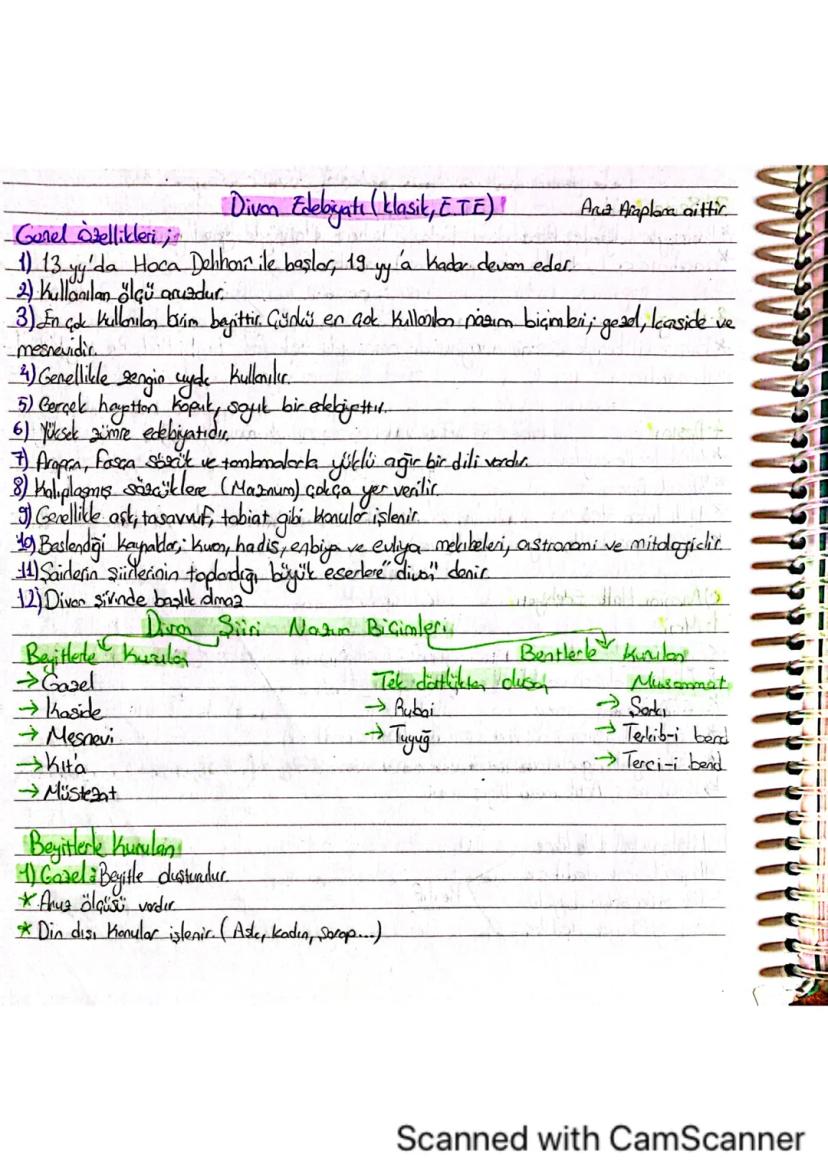 Divan Edebiyatı (klasik, E.T.E)
Aruz Araplara aittir.
Genel özellikleri;
1) 13.yy'da Hoca Dehhani ile başlar, 19 yy'a kadar devam eder.
2) Kullanılan ölçü aruzdur.
3) En çok kullanılan birim beyittir. Çünkü en çok kullanılan nazım biçimleri; gazel, kaside ve
mesnevidir.
4) Genellikle zengin uyak kullanılır.
5) Gerçek hayattan kopuk, soyut bir edebiyattır.
6) Yüksek zümre edebiyatıdır.
7) Arapça, Farsça sözcük ve tamlamalarla yüklü ağır bir dili vardır.
8) Kalıplaşmış sözcüklere (Mazmum) çokça yer verilir.
9) Genellikle aşk, tasavvuf, tabiat gibi konular işlenir.
10) Beslendiği kaynaklar; kuran, hadis, enbiya ve evliya menkıbeleri, astronomi ve mitolojidir.
11) Şairlerin şiirlerinin toplandığı büyük eserlere "divan" denir.
12) Divan şiirinde başlık olmaz
Divan Şiiri Nazım Biçimleri
Beyitlerle Kurulan
Bentlerle Kurulan
→ Gazel
→ Kaside
→ Mesnevi
→ Kıt'a
→ Müstezat
Tek dörtlükten oluşan
→ Rubai
→ Tuyuğ
Musammat
→ Şarkı
→ Terkib-i bend
→ Terci-i bend
Beyitlerle Kurulan
1) Gazel: Beyitle oluşturulur.
* Aruz ölçüsü vardır.
* Din dışı konular işlenir. (Aşk, kadın, şarap...)
Scanned with CamScanner